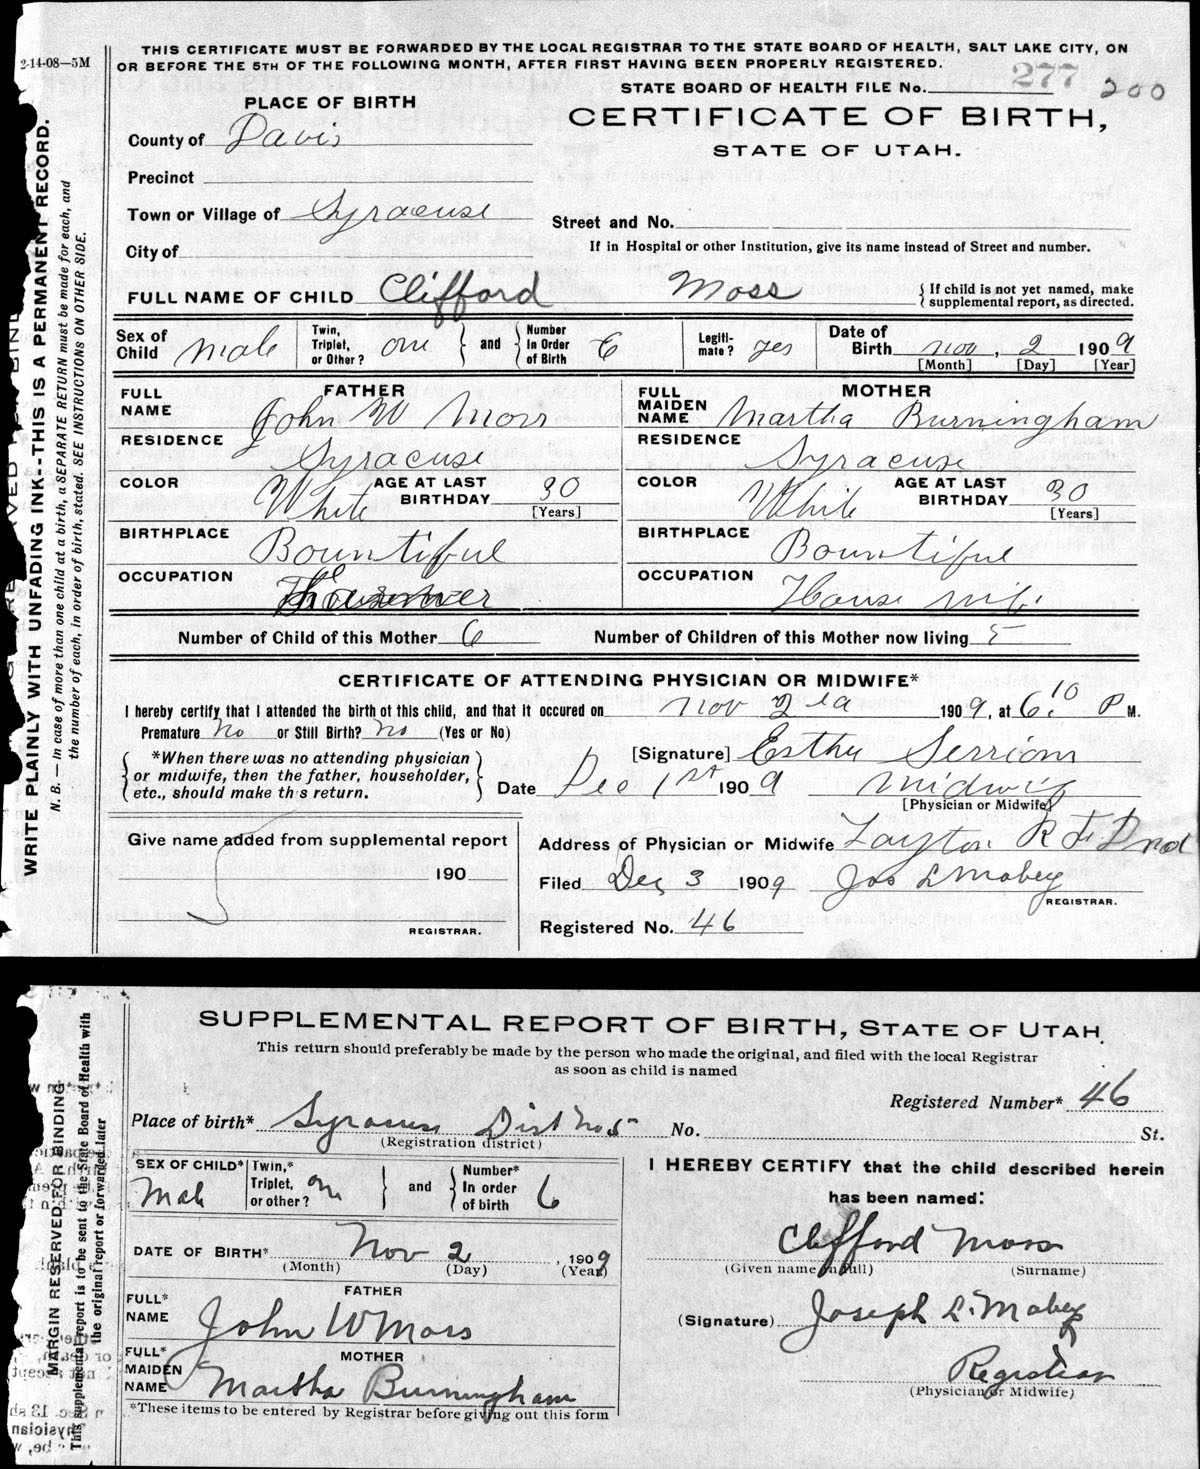 2-14-08—5M
THIS CERTIFICATE MUST BE FORWARDED BY THE LOCAL REGISTRAR TO THE STATE BOARD OF HEALTH, SALT LAKE CITY, ON
OR BEFORE THE 5TH OF THE FOLLOWING MONTH, AFTER FIRST HAVING BEEN PROPERLY REGISTERED.
STATE BOARD OF HEALTH FILE No. 277 200
PLACE OF BIRTH
CERTIFICATE OF BIRTH,
STATE OF UTAH.
County of Davis
Precinct
Town or Village of Syracuse
Street and No.
City of
If in Hospital or other Institution, give its name instead of Street and number.
FULL NAME OF CHILD Clifford Moss
If child is not yet named, make
supplemental report, as directed.
Sex of Child Male
Twin, Triplet, or Other? one and Number In Order of Birth 6
Legitimate? yes
Date of Birth Nov, 2 1909
[Month] [Day] [Year]
FATHER
FULL NAME John W Moss
RESIDENCE Syracuse
COLOR White AGE AT LAST BIRTHDAY 30
[Years]
BIRTHPLACE Bountiful
OCCUPATION
MOTHER
FULL MAIDEN NAME Martha Burningham
RESIDENCE Syracuse
COLOR White AGE AT LAST BIRTHDAY 30
[Years]
BIRTHPLACE Bountiful
OCCUPATION House wife
Number of Child of this Mother 6 Number of Children of this Mother now living 5
CERTIFICATE OF ATTENDING PHYSICIAN OR MIDWIFE*
I hereby certify that I attended the birth of this child, and that it occured on Nov 2 1909, at 6:10 P M.
Premature No or Still Birth? No (Yes or No)
*When there was no attending physician
or midwife, then the father, householder,
etc., should make this return.
[Signature] Esther
Date Dec 1st 1909 Midwife
[Physician or Midwife]
Give name added from supplemental report
190
REGISTRAR.
Address of Physician or Midwife Layton R F D
Filed Dec 3 1909 Jos L Mabey
REGISTRAR.
Registered No. 46
WRITE PLAINLY WITH UNFADING INK--THIS IS A PERMANENT RECORD.
N. B. — In case of more than one child at a birth, a SEPARATE RETURN must be made for each, and
the number of each, in order of birth, stated. SEE INSTRUCTIONS ON OTHER SIDE.
SUPPLEMENTAL REPORT OF BIRTH, STATE OF UTAH.
This return should preferably be made by the person who made the original, and filed with the local Registrar
as soon as child is named
Registered Number* 46
Place of birth* Syracuse Dist No 5 No. St.
(Registration district)
SEX OF CHILD* Male
Twin,* Triplet, or other? one and Number* In order of birth 6
DATE OF BIRTH* Nov 2, 1909
(Month) (Day) (Year)
FATHER
FULL* NAME John W Moss
MOTHER
FULL* MAIDEN NAME Martha Burningham
*These items to be entered by Registrar before giving out this form
I HEREBY CERTIFY that the child described herein
has been named:
Clifford Moss
(Given name in full) (Surname)
(Signature) Joseph L. Mabey
Registrar
(Physician or Midwife)
MARGIN RESERVED FOR BINDING
This supplemental report is to be sent to the State Board of Health with
the original report or forwarded later